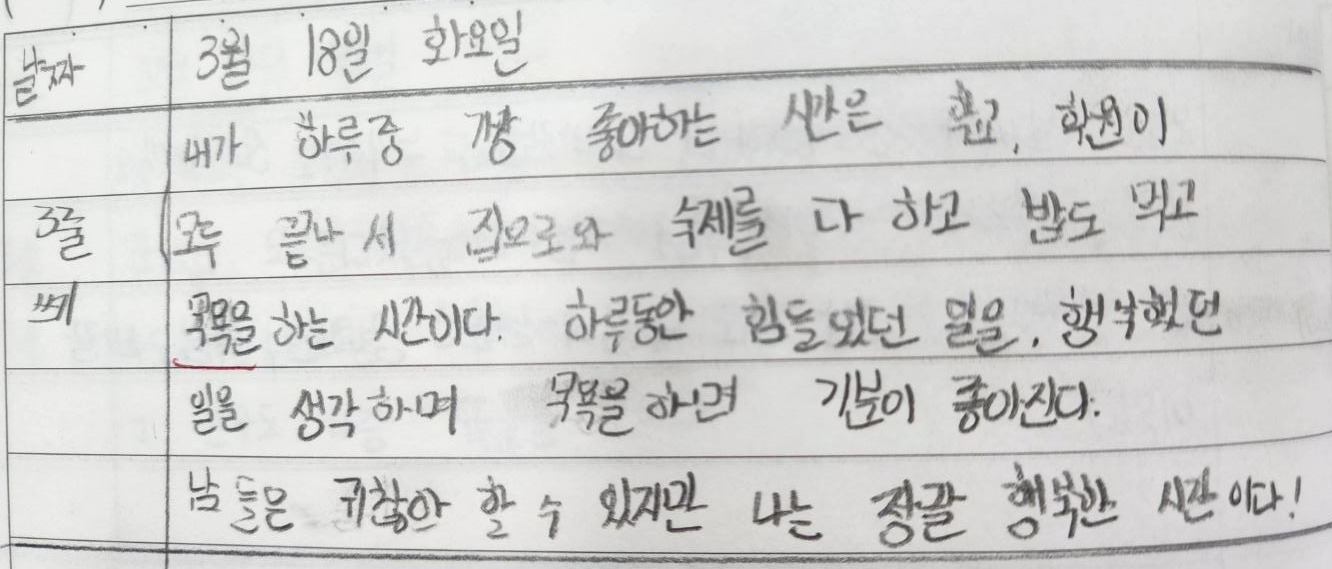 날짜 3월 18일 화요일
내가 하루중 가장 좋아하는 시간은 학교, 학원이
3줄 모두 끝나서 집으로와 숙제를 다 하고 밥도 먹고
쎄 목욕을 하는 시간이다. 하루동안 힘들었던 일을, 행복했던
일을 생각하며 목욕을 하면 기분이 좋아진다.
남들은 귀찮아 할 수 있지만 나는 정말 행복한 시간이다!